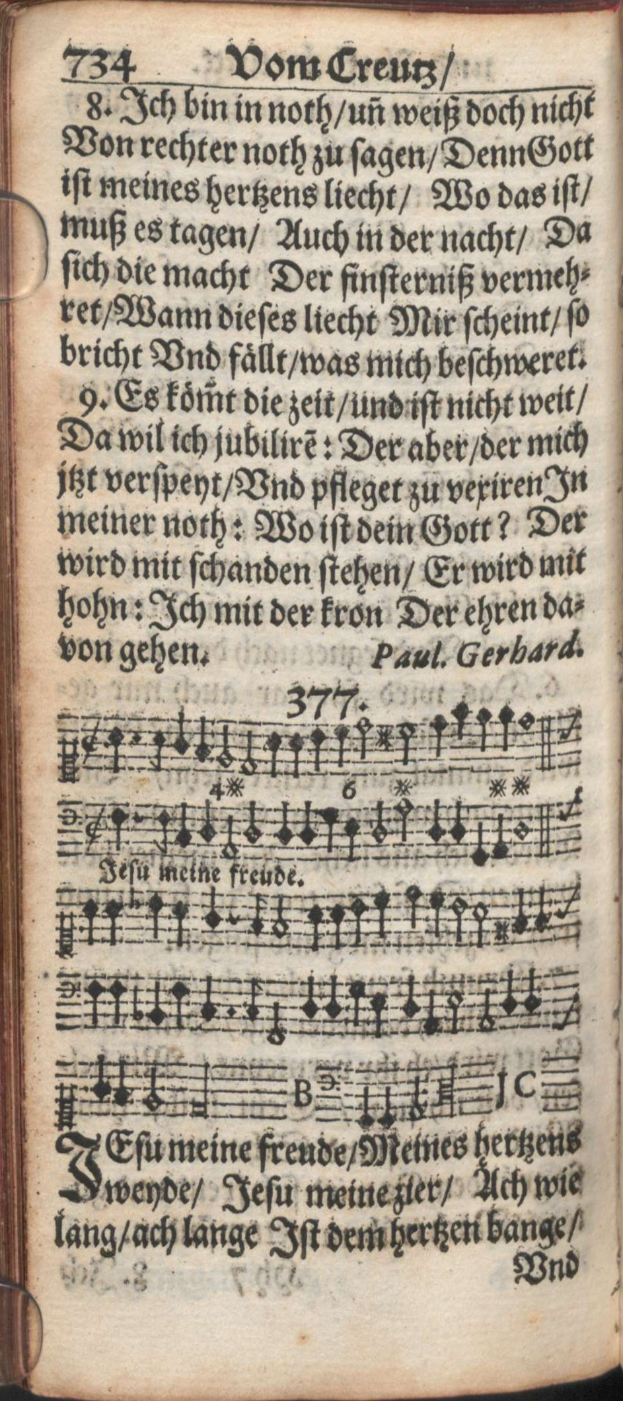 734 Vom Creutz/
8. Jch bin in noth/uñ weiß doch nicht
Von rechter noth zu sagen/DennGott
ist meines hertzens liecht/ Wo das ist/
muß es tagen/ Auch in der nacht/ Da
sich die macht Der finsterniß vermeh-
ret/Wann dieses liecht Mir scheint/so
bricht Vnd fällt/was mich beschweret.
9. Es köm̃t die zeit/und ist nicht weit/
Da wil ich jubilirē: Der aber/der mich
jtzt verspeyt/Vnd pfleget zu vexirenJn
meiner noth: Wo ist dein Gott? Der
wird mit schanden stehen/ Er wird mit
hohn: Jch mit der kron Der ehren da-
von gehen. Paul. Gerhard.
377.
4 6
Jesu meine freude.
B J C
JEsu meine freude/Meines hertzens
weyde/ Jesu meine zier/ Ach wie
lang/ach lange Jst dem hertzen bange/
Vnd